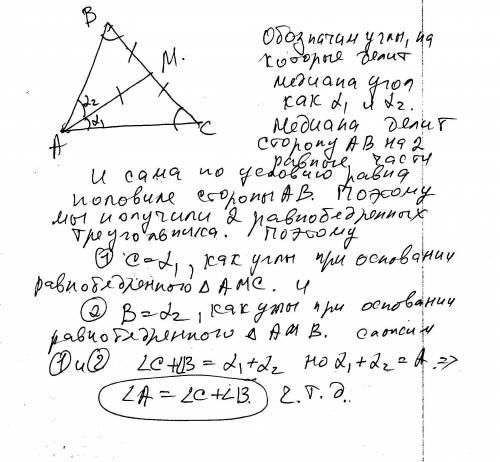 B
M.
α₂
α₁
A
C
Обозначим углы, на
которые делит
медиана угол
как α₁ и α₂.
Медиана делит
сторону AB на 2
равные части
и сама по условию равна
половине стороны AB. Поэтому
мы получили 2 равнобедренных
треугольника. Поэтому
① C=α₁, как углы при основании
равнобедренного △ AMC. и
② B=α₂, как углы при основании
равнобедренного △ AMB. сложим
① и ② ∠C+∠B = α₁+α₂ но α₁+α₂=A. =>
∠A = ∠C+∠B. Ч.Т.Д.